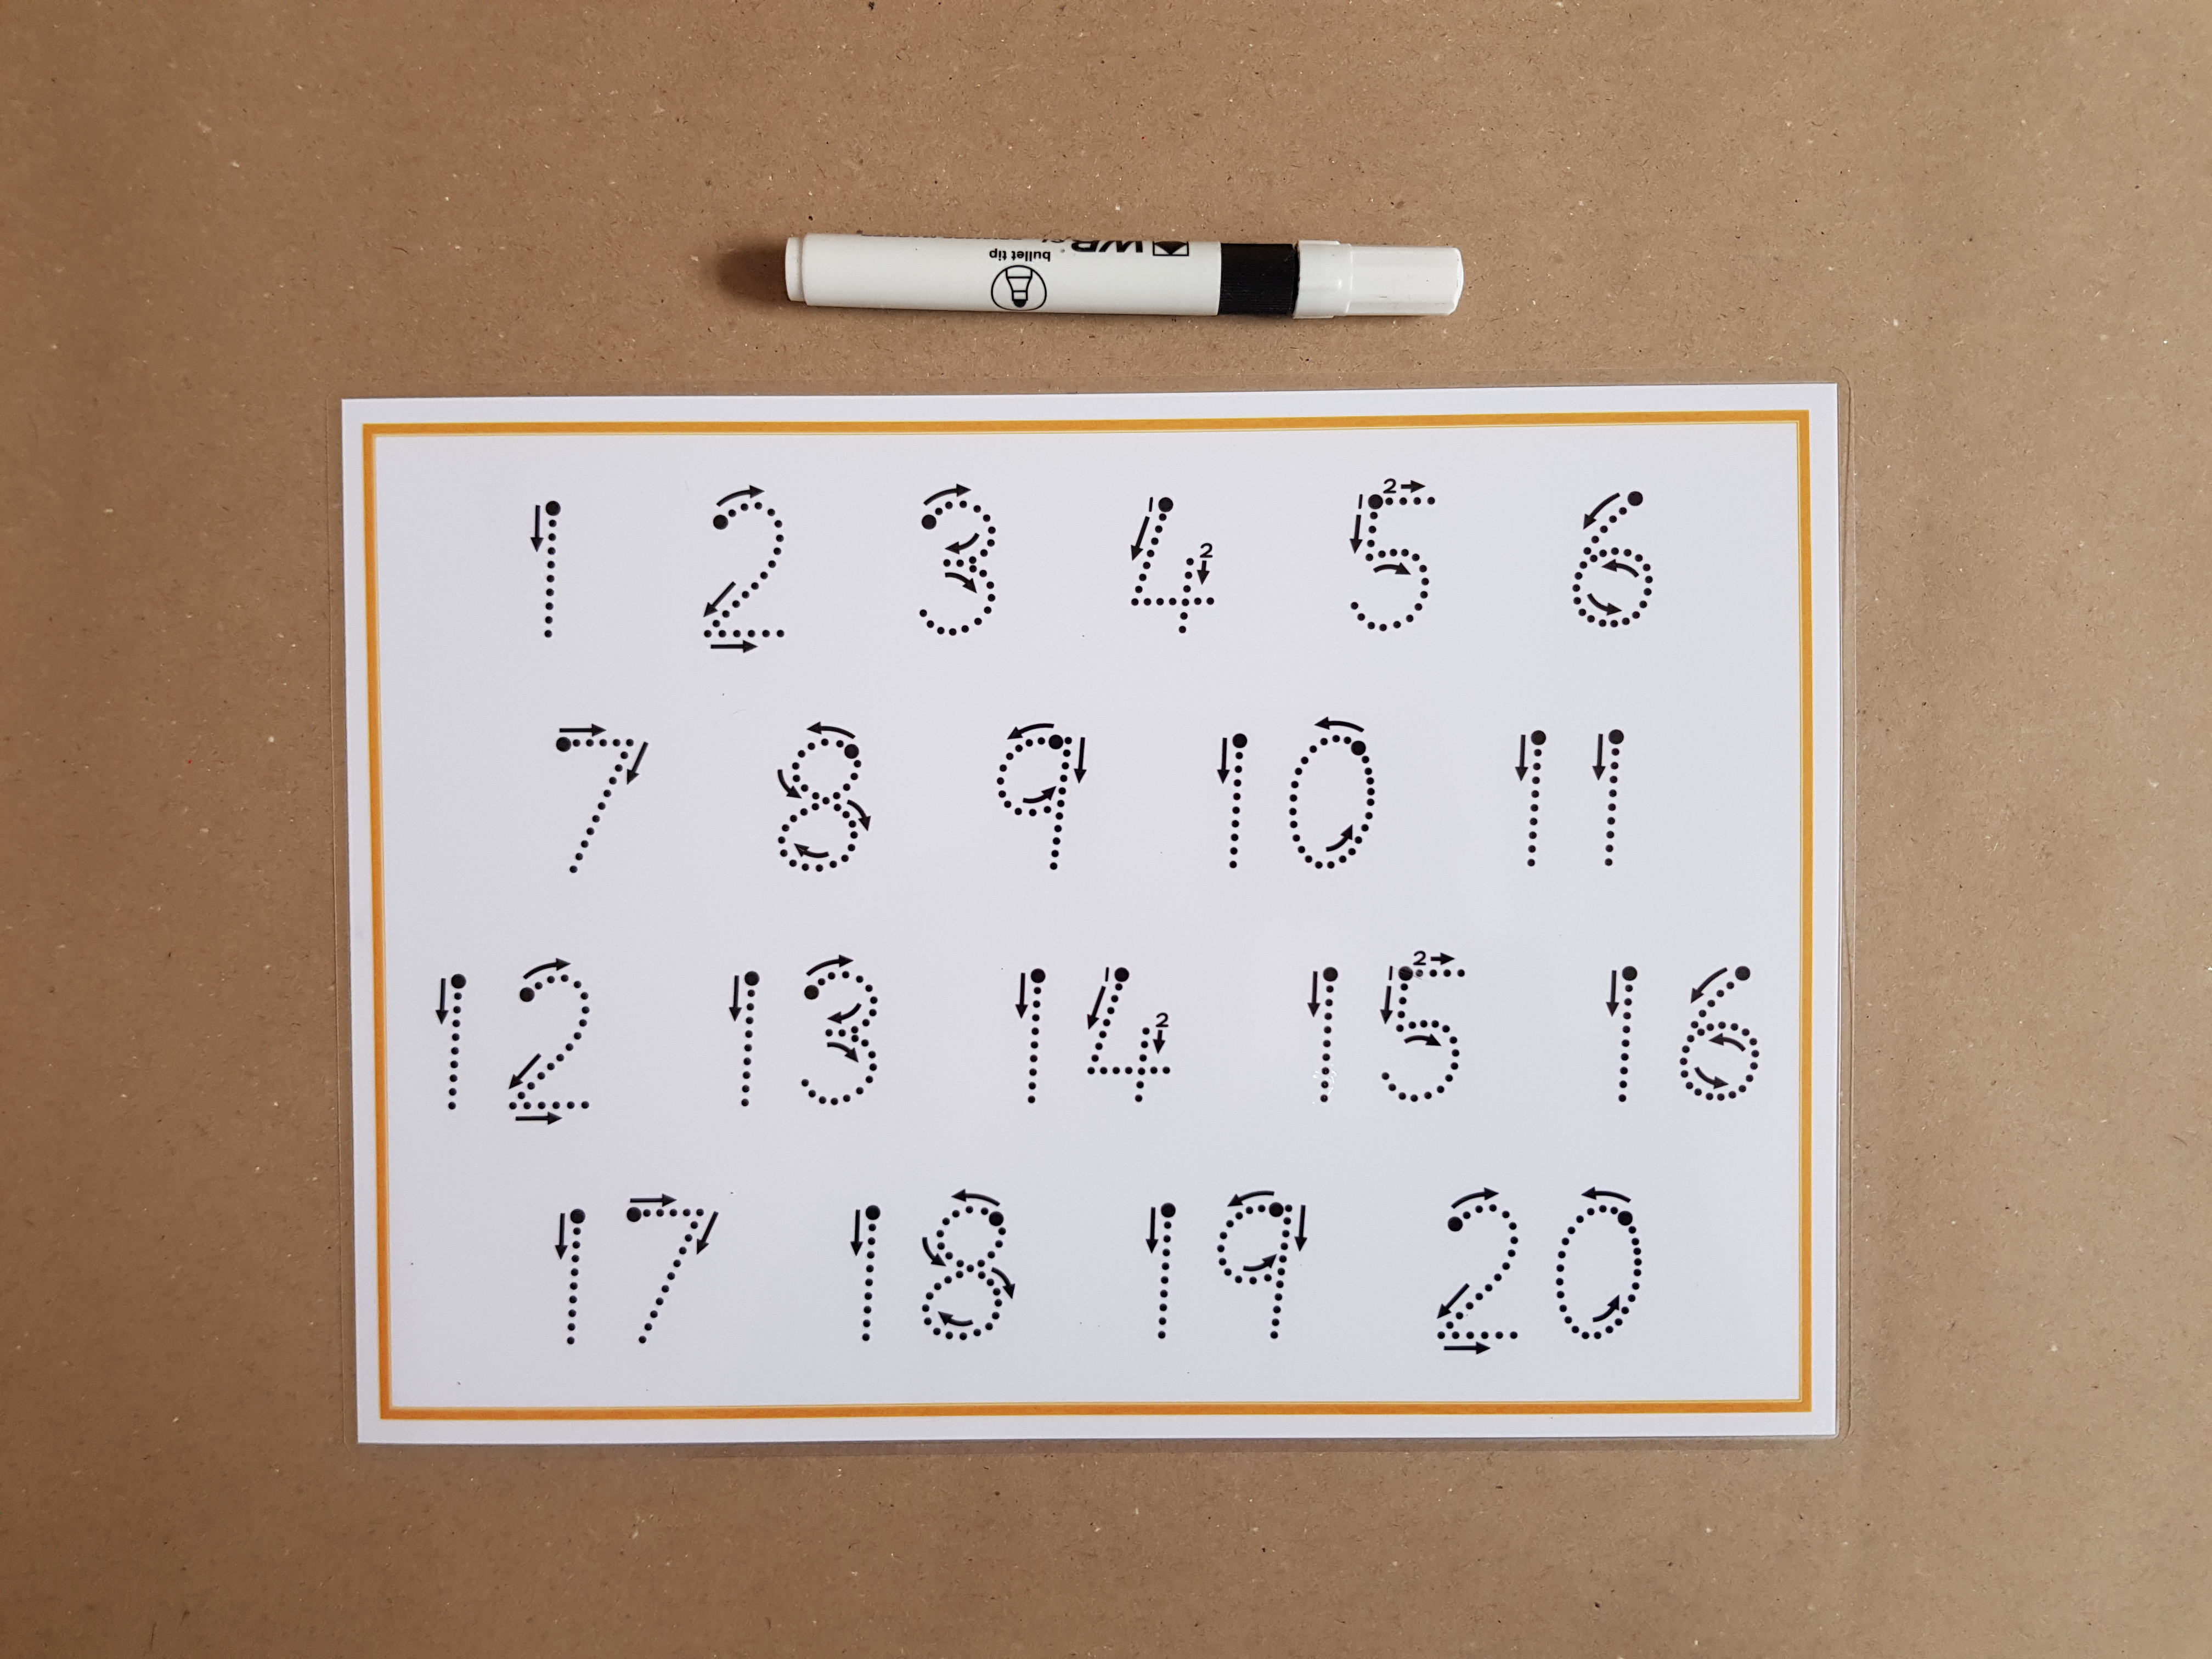 WB
bullet tip
1 2 3 4 5 6
7 8 9 10 11
12 13 14 15 16
17 18 19 20